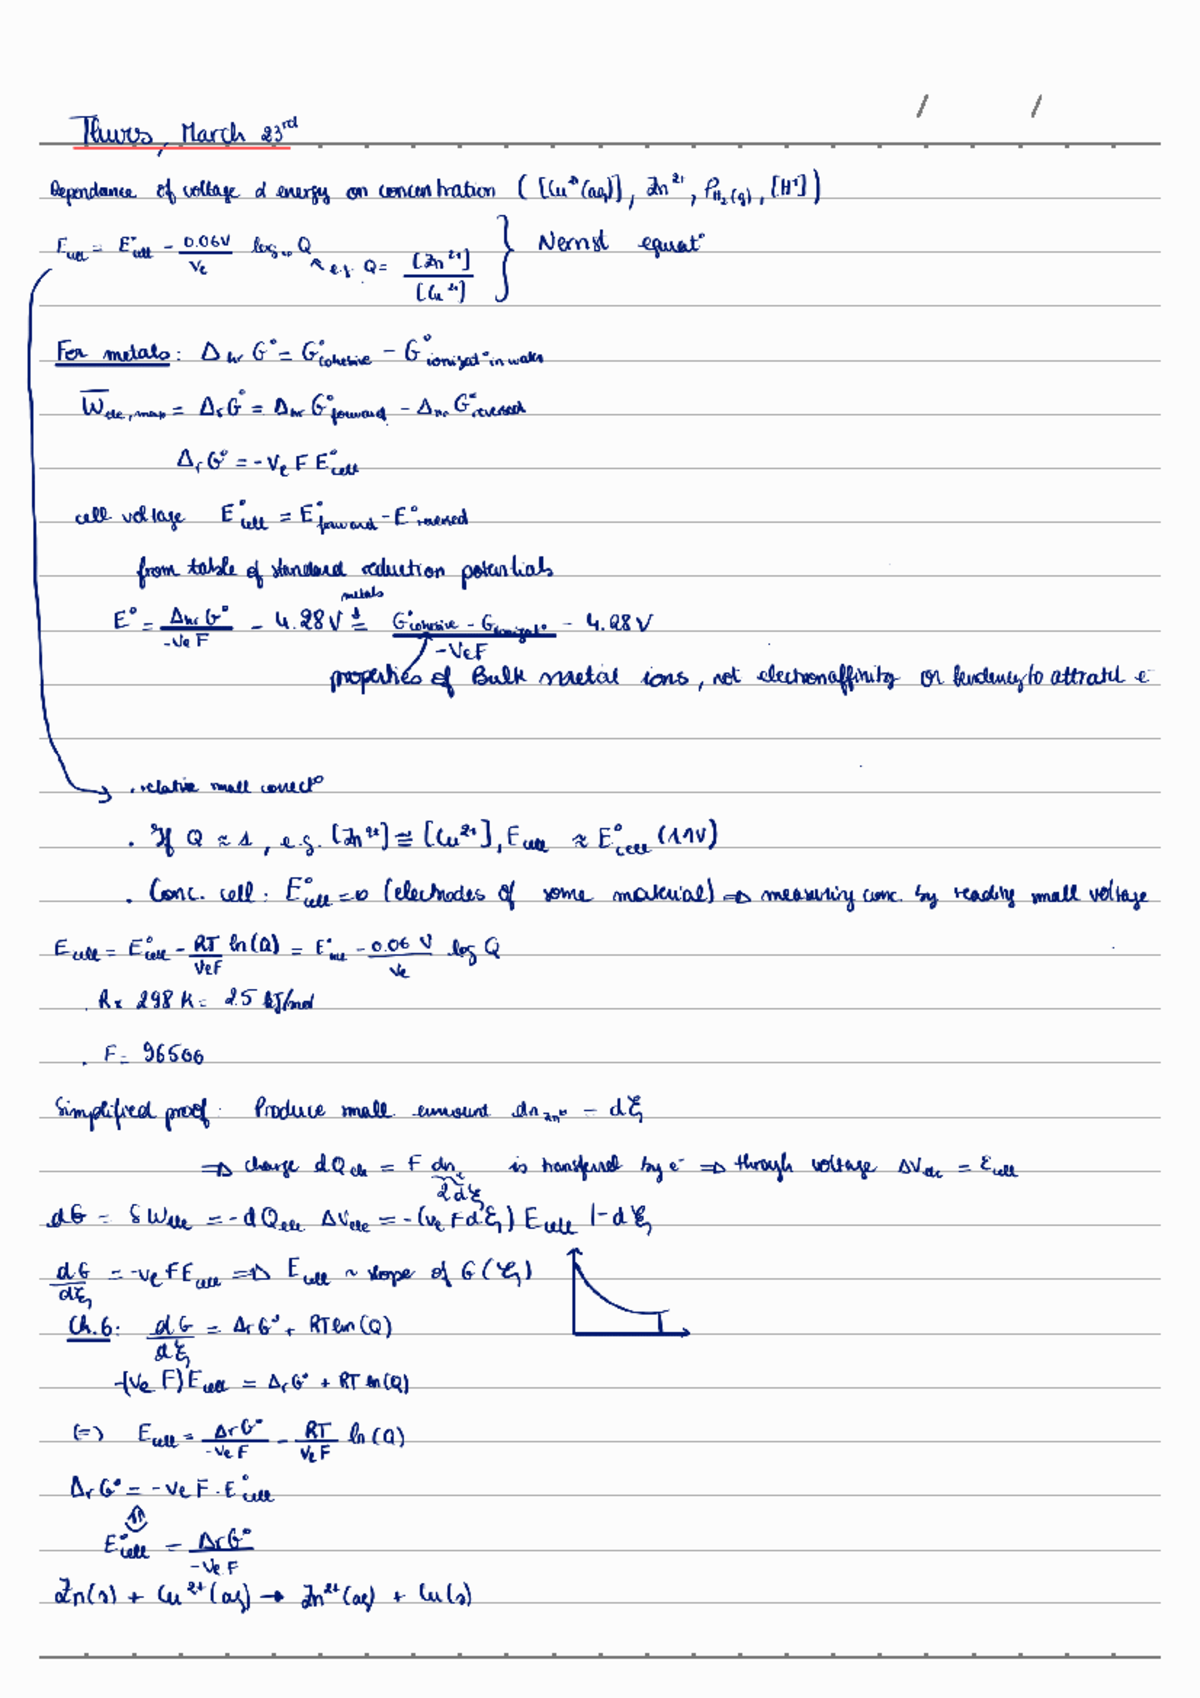 Thurs, March 23rd
Dependance of voltage & energy on concentration ([Cu²⁺(aq)], Zn²⁺, P_H₂(g), [H⁺])
E_cell = E°_cell − 0.06V/νe log₁₀ Q e.g. Q = [Zn²⁺]/[Cu²⁺] } Nernst equat°
For metals: Δhr G° = G°cohesive − G°ionizat° in water
W̄ele,max = ΔrG° = Δhr G°forward − Δhr G°reversed
ΔrG° = −νe F E°cell
cell voltage E°cell = E°forward − E°reversed
from table of standard reduction potentials
metals
E° = Δhr G°/−νe F − 4.28V = G°cohesive − Gionizat°/−νeF − 4.28V
properties of Bulk metal ions, not electronaffinity or tendency to attract e⁻
. relative small correct°
. If Q ≈ 1, e.g. [Zn²⁺] ≅ [Cu²⁺], Ecell ≈ E°cell (1.1V)
. Conc. cell: E°cell = 0 (electrodes of some material) ⇒ measuring conc. by reading small voltage
Ecell = E°cell − RT/νeF ln(Q) = E°cell − 0.06 V/νe log Q
. R × 298 K = 2.5 kJ/mol
. F = 96500
Simplified proof: Produce small amount dn Zn²⁺ = dξ
⇒ charge dQele = F dne is transferred by e⁻ ⇒ through voltage ΔVele = Ecell
2dξ
dG = δWele = −dQele ΔVele = −(νe F dξ) Ecell |÷dξ
dG/dξ = −νe F Ecell ⇒ Ecell ~ slope of G(ξ)
Ch.6: dG/dξ = ΔrG° + RT ln(Q)
−(νe F)Ecell = ΔrG° + RT ln(Q)
(=) Ecell = ΔrG°/−νe F − RT/νe F ln(Q)
ΔrG° = −νe F · E°cell
E°cell = ΔrG°/−νe F
Zn(s) + Cu²⁺(aq) → Zn²⁺(aq) + Cu(s)